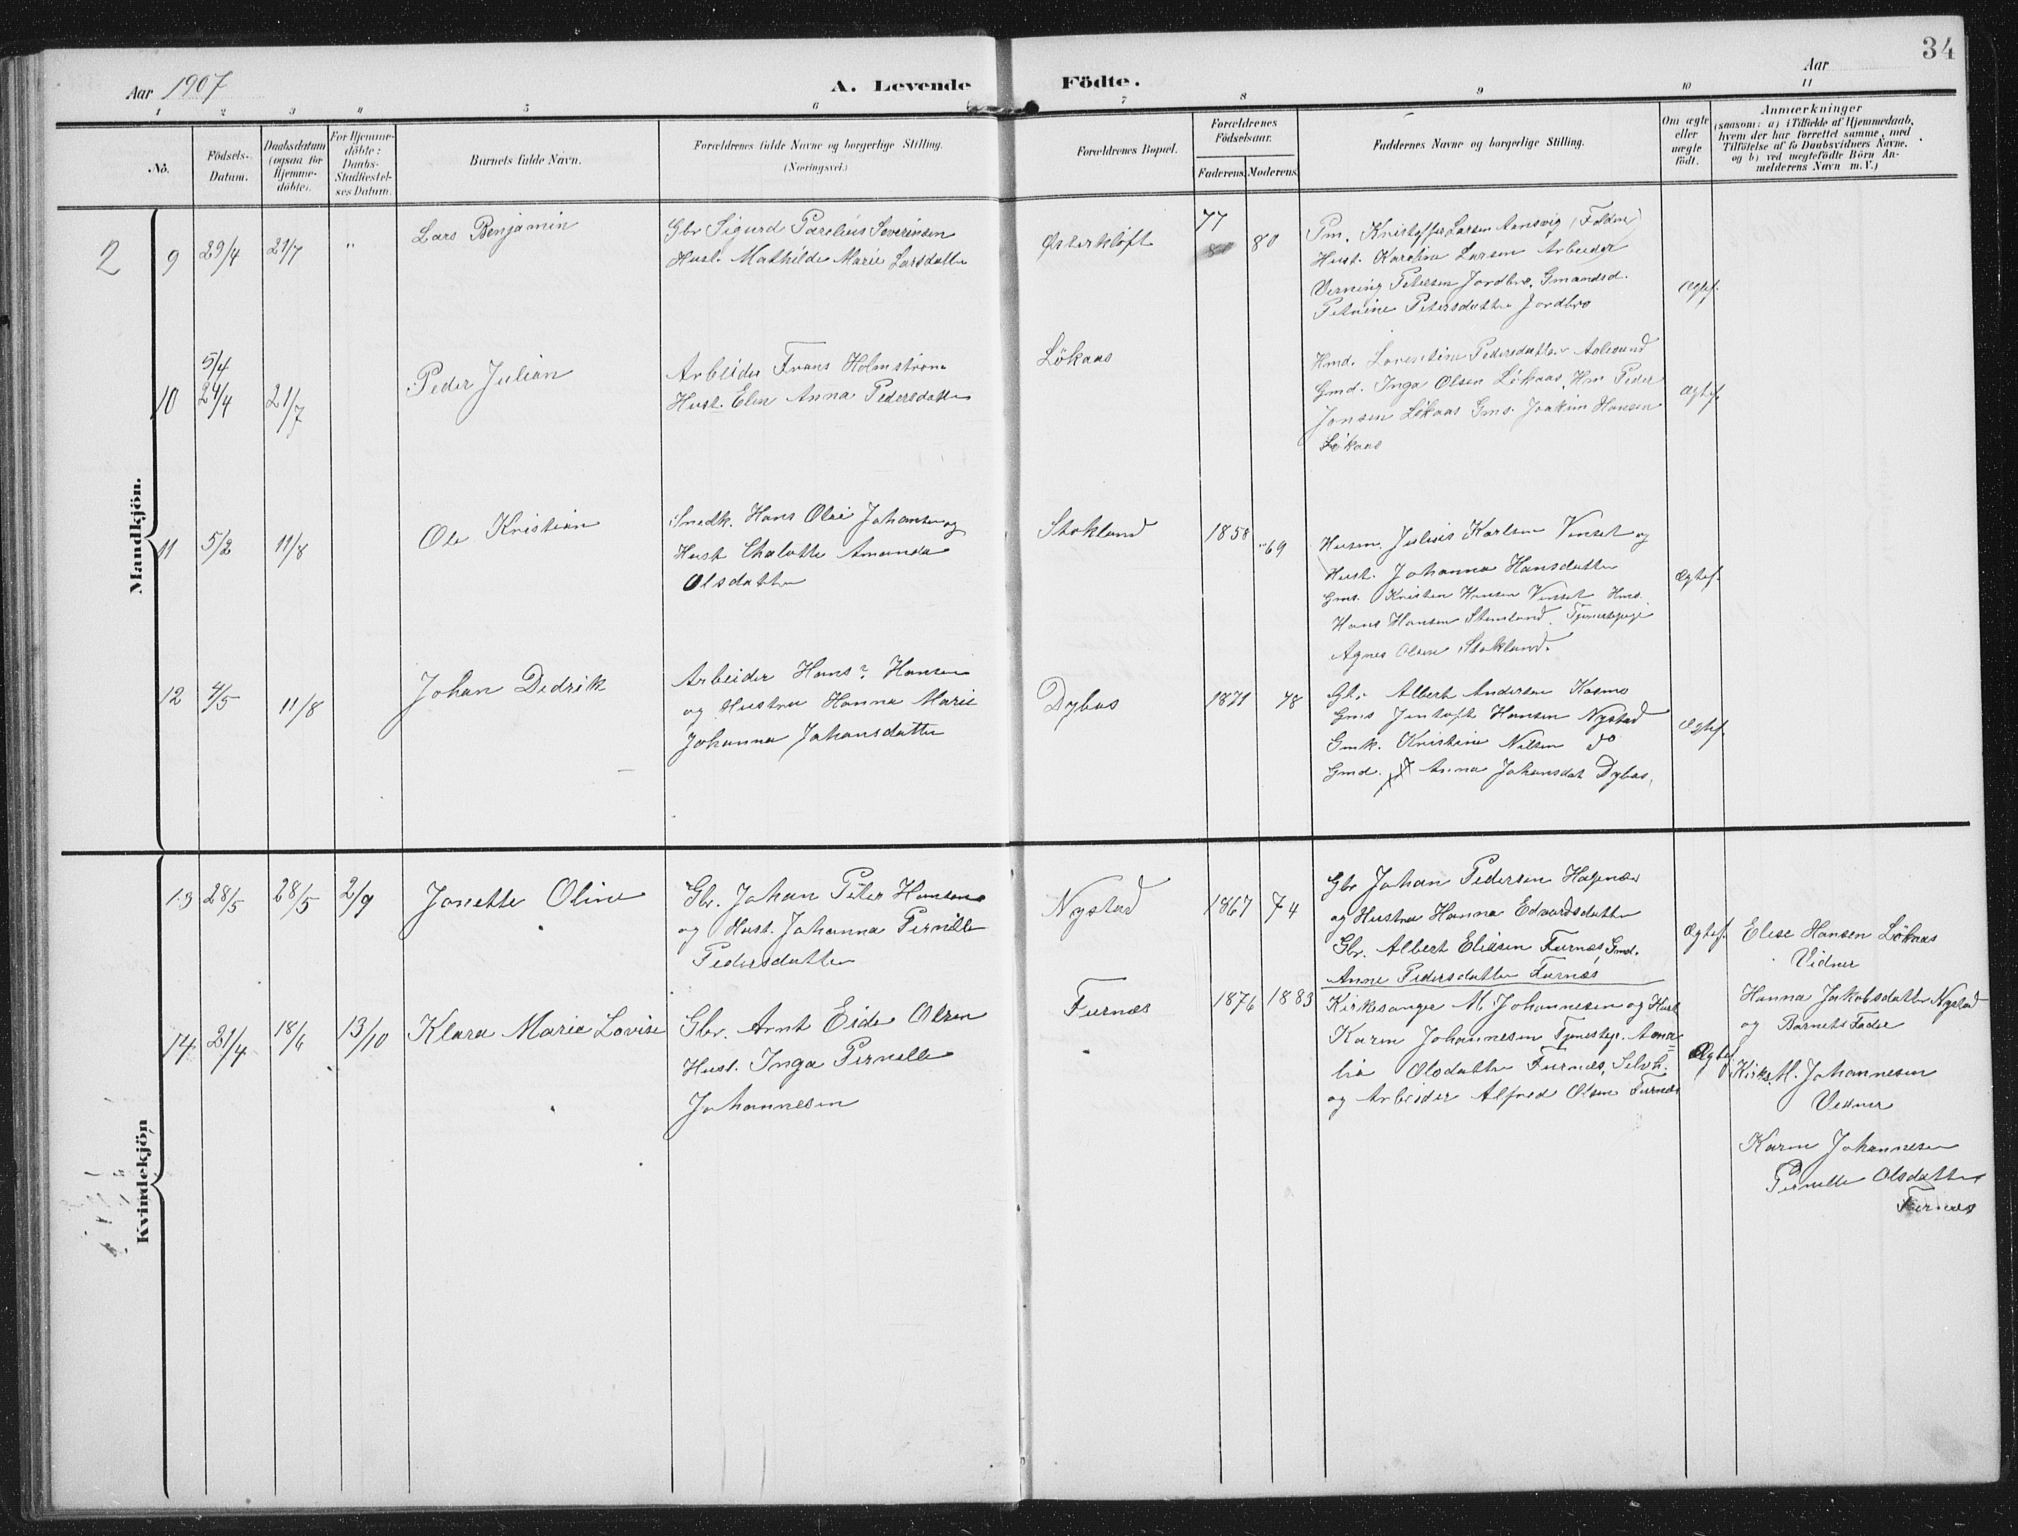 34
Aar 1907
A. Levende Födte.
Aar
1 2 3 4 5 6 7 8 9 10 11
No.
Födsels-
Datum.
Daabsdatum
(ogsaa for
Hjemme-
döbte).
For Hjemme-
döbte:
Daabs-
Stadfæstel-
ses Datum.
Barnets fulde Navn.
Forældrenes fulde Navne og borgerlige Stilling.
(Næringsvei.)
Forældrenes Bopæl.
Forældrenes
Födselsaar.
Faderens. Moderens.
Faddernes Navne og borgerlige Stilling.
Om ægte
eller
uægte
født.
Anmærkninger
(saasom: a) i Tilfælde af Hjemmedaab,
hvem der har forrettet samme, med
Tilföielse af to Daabsvidners Navne.
og b) ved uægtefödte Börn An-
melderens Navn m. V.)
Mandkjön.
2
9 29/4 21/7 "
Lars Benjamin
Gbr Sigurd Parelius Severinsen
Hust. Mathilde Marie Larsdatter
Østerkløft
77
80
Pm. Kristoffer Larsen Aansvig (Folden)
Hust. Karolina Larsen Arbeider
Verning Petersen Jordbro, Gmandsd.
Petrine Petersdatter Jordbro
Ægtef.
10
5/4
24/4
21/7
Peder Julian
Arbeider Frans Holmstrøm
Hust. Elen Anna Pedersdatter
Lökaas
Hmd. Lorentine Pedersdatter Aalesund
Gmd. Inga Olsen Lökaas, Hm Peder
Jonsen Lökaas Gms. Joakim Hansen
Lökaas
Ægtef.
11 5/2 11/8
Ole Kristian
Smedk. Hans Olai Johansen og
Hust Chalotte Amanda
Olsdatter
Stokland
1858 69
Husm. Julius Karlsen Venset og
Hust. Johanna Hansdatter
Gms. Kristen Hansen Venset Hms.
Hans Hansen Stemland, Tjenestepige
Agnes Olsen Stokland.
Ægtef.
12 4/5 11/8
Johan Dedrik
Arbeider Hans Hansen
og Hustru Hanna Marie
Johanna Johansdatter
Dybos
1871 78
Albert Andersen Kosmo
Gms Jentoft Hansen Nystad
Gmk. Kristine Nilsen do
Gmd. Anna Johansdat Dybos,
Ægtef.
Kvindekjön
13 28/5 28/5 2/9
Jonette Oline
Gbr. Johan Peter Hansen
og Hust. Johanna Pernille
Pedersdatter
Nystad
1867 74
Gbr Johan Pedersen Hagenæs
og Hustru Hanna Edvardsdatter
Gbr. Albert Eliasen Furnes, Gmd.
Anne Pedersdatter Furnæs
Ægtef.
Elise Hansen Lökaas
Vidner
Hanna Jakobsdatter Nystad
og Barnets Fader
14 21/4 18/6 13/10
Klara Marie Lovise
Gbr. Arnt Eide Olsen
Hust. Inga Pernelle
Johannesen
Furnæs
1876 1883
Kirksanger M. Johannesen og Hust
Karen Johannesen Tjenestep. Ama-
lia Olsdatter Furnæs, Selvh.
og Arbeider Alfred Olsen Furnæs
Ægtef
Kirks. M. Johannesen
Vidner
Karen Johannesen
Pernelle Olsdatter
Furnæs